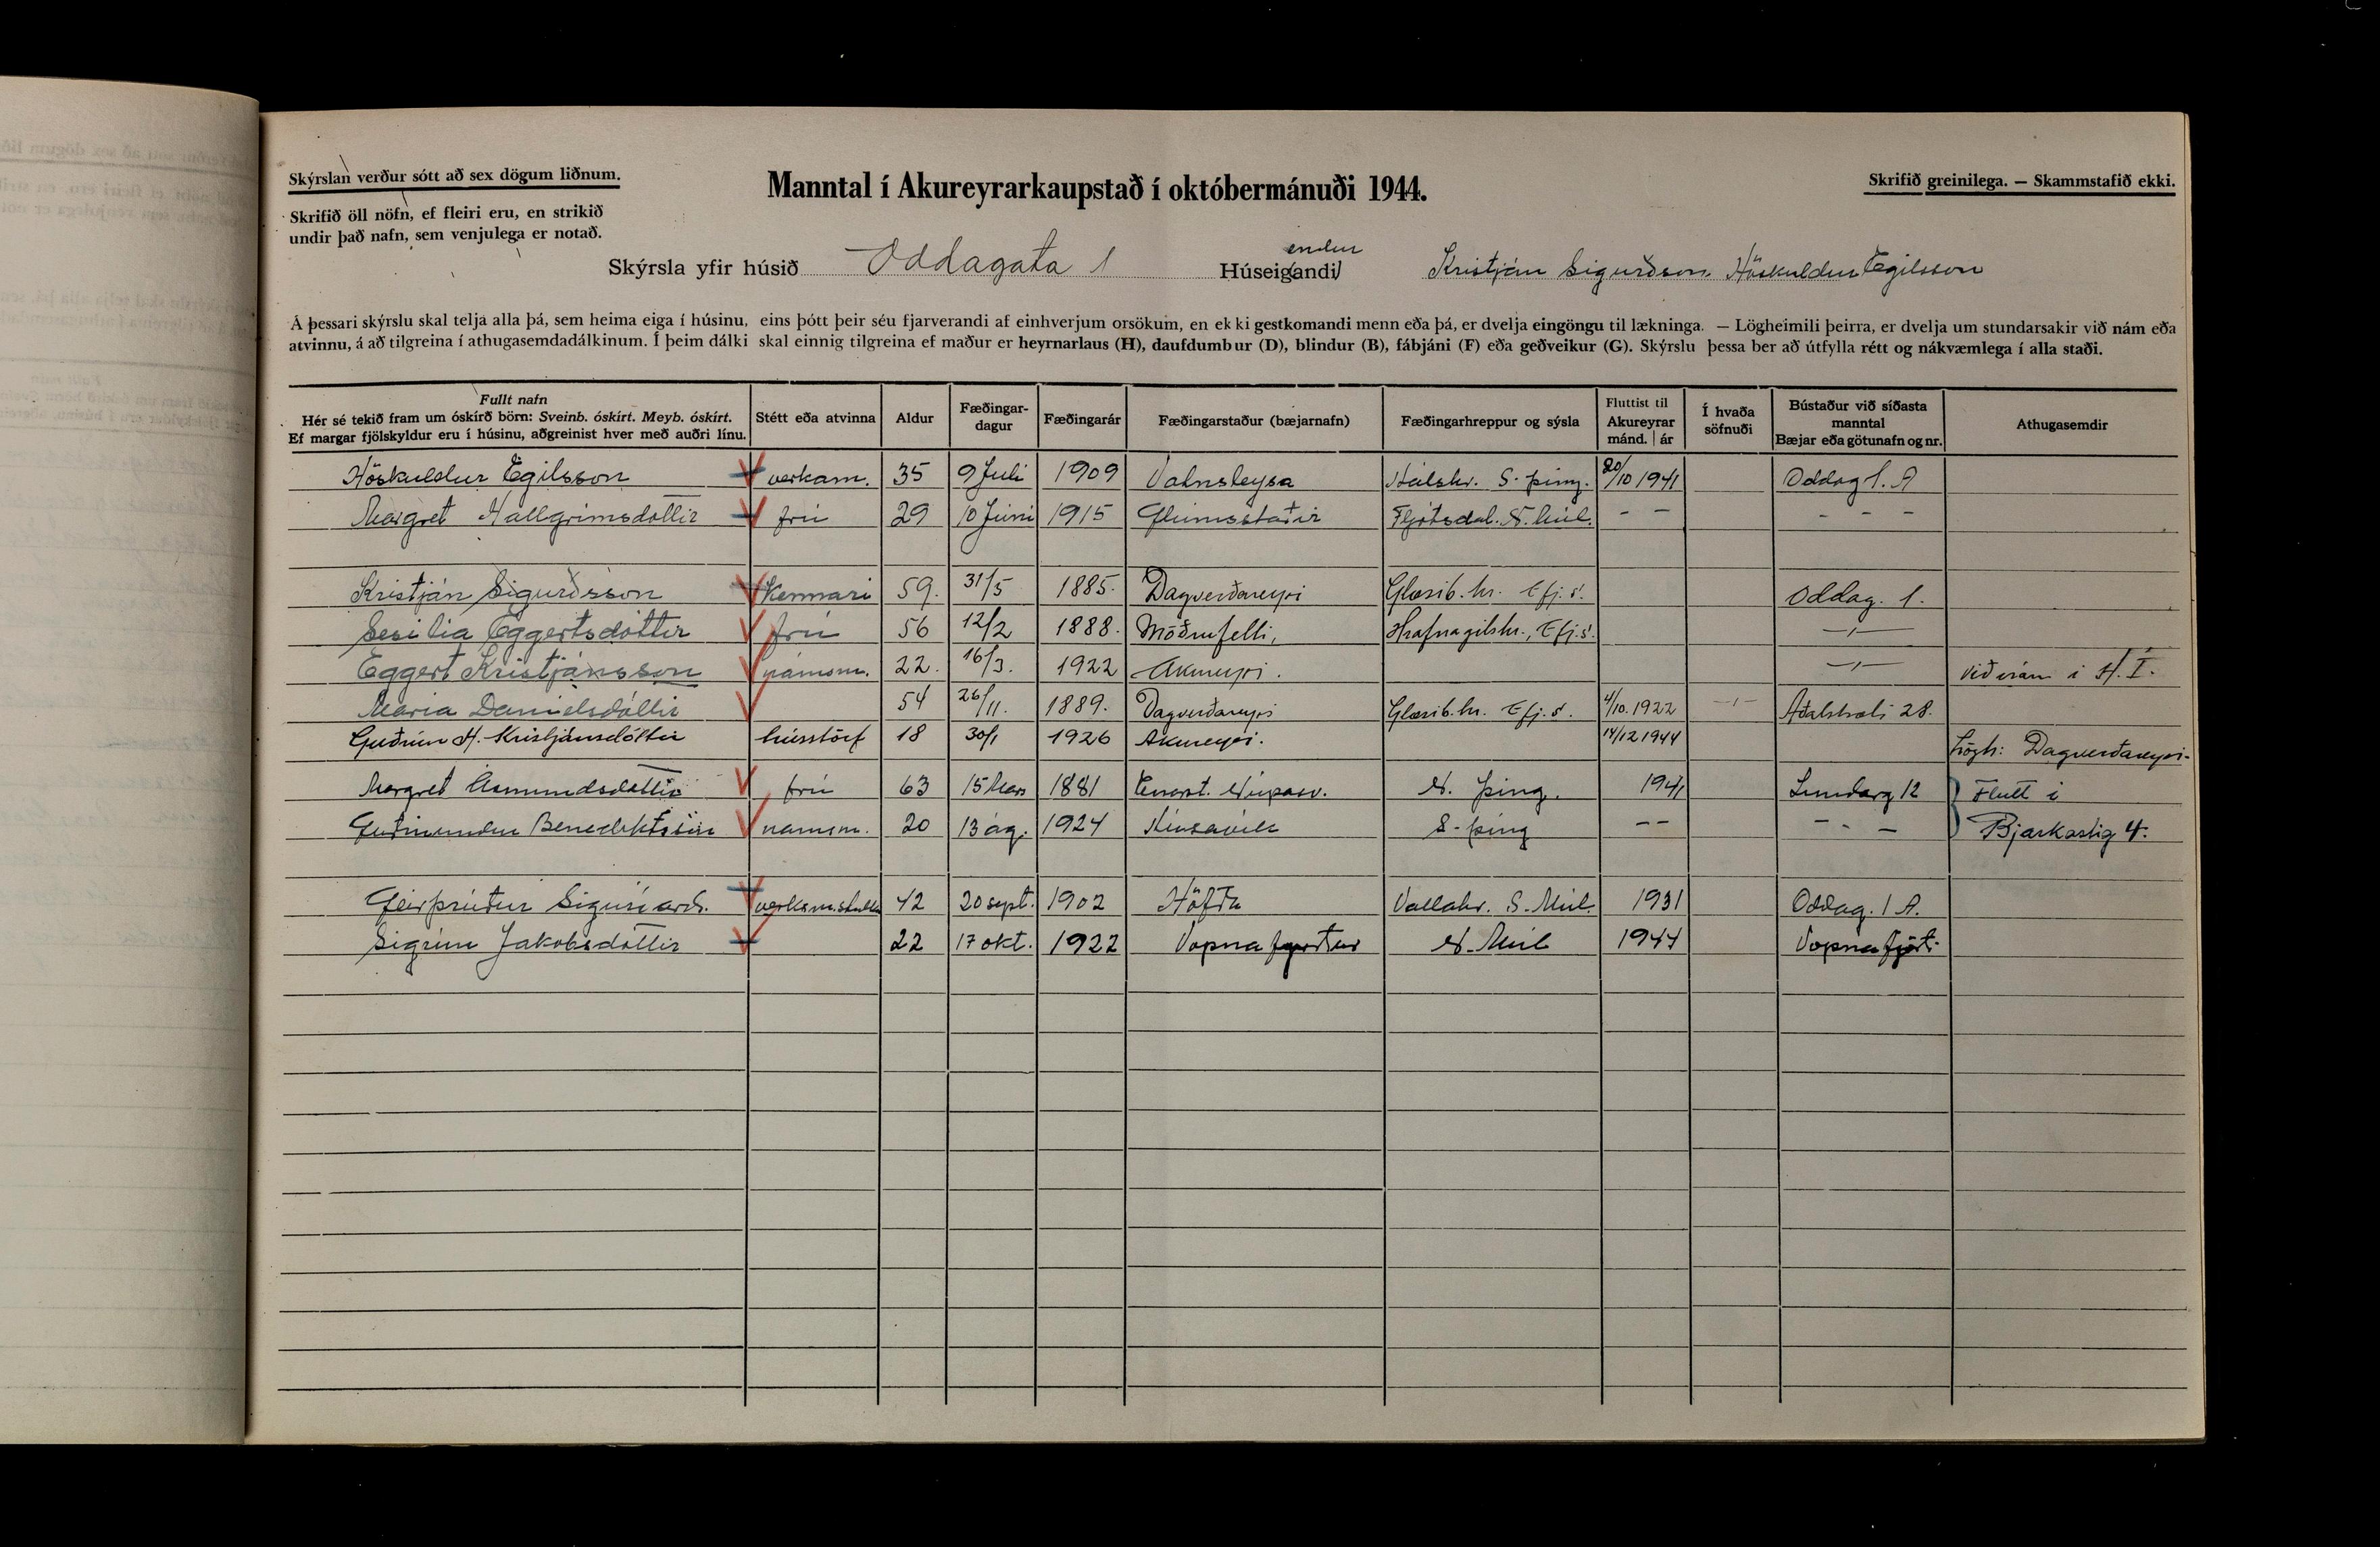 Skýrslan verður sótt að sex dögum liðnum.
Manntal í Akureyrarkaupstað í októbermánuði 1944.
Skrifið greinilega. — Skammstafið ekki.
Skrifið öll nöfn, ef fleiri eru, en strikið
undir það nafn, sem venjulega er notað.
Skýrsla yfir húsið Oddagata 1 Húseigandi endur Kristján Sigurðsson Höskuldur Egilsson
Á þessari skýrslu skal telja alla þá, sem heima eiga í húsinu, eins þótt þeir séu fjarverandi af einhverjum orsökum, en ekki gestkomandi menn eða þá, er dvelja eingöngu til lækninga. — Lögheimili þeirra, er dvelja um stundarsakir við nám eða
atvinnu, á að tilgreina í athugasemdadálkinum. Í þeim dálki skal einnig tilgreina ef maður er heyrnarlaus (H), daufdumbur (D), blindur (B), fábjáni (F) eða geðveikur (G). Skýrslu þessa ber að útfylla rétt og nákvæmlega í alla staði.
Fullt nafn
Hér sé tekið fram um óskírð börn: Sveinb. óskírt. Meyb. óskírt.
Ef margar fjölskyldur eru í húsinu, aðgreinist hver með auðri línu.
Stétt eða atvinna
Aldur
Fæðingar-
dagur
Fæðingarár
Fæðingarstaður (bæjarnafn)
Fæðingarhreppur og sýsla
Fluttist til
Akureyrar
mánd. | ár
Í hvaða
söfnuði
Bústaður við síðasta
manntal
Bæjar eða götunafn og nr.
Athugasemdir
Höskuldur Egilsson verkam. 35 9 Juli 1909 Vatnsleysa Hálshr. S-þing. 20/10 1941 Oddag 1. A
Margret Hallgrimsdottir frú 29 10 Júni 1915 Glúmsstaðir Fljótsdal. N. Múl. - - - - -
Kristján Sigurðsson Kennari 59. 31/5 1885. Dagverðareyri Glæsib.hr. Efj.s. Oddag. 1.
Sesilia Eggertsdóttir frú 56 12/2 1888. Möðrufelli, Hrafnagilshr., Efj.s. —〃—
Eggert Kristjánsson námsm. 22. 16/3. 1922 Akureyri. —〃— Við nám í H.Í.
Maria Danielsdóttir 54 26/11. 1889. Dagverðareyri Glæsib.hr. Efj.s. 4/10. 1922 -〃- Aðalstræti 28.
Guðrún H. Kristjánsdóttir hússtörf 18 30/1 1926 Akureyri. 14/12 1944 Lögh: Dagverðareyri-
Margret Ásmundsdóttir frú 63 15 Mars 1881 N. þing. 1941 Lundarg 12 Flutt í
Guðmundur Benediktsson námsm. 20 13 ág. 1924 Húsavík S-þing - - - - - Bjarkastig 4.
Geirþrúður Sigurðard. 42 20 sept. 1902 Höfða Vallahr. S. Múl. 1931 Oddag. 1 A.
Sigrún Jakobsdóttir 22 17 okt. 1922 Vopnafjörður N-Múl 1944 Vopnafjörð.